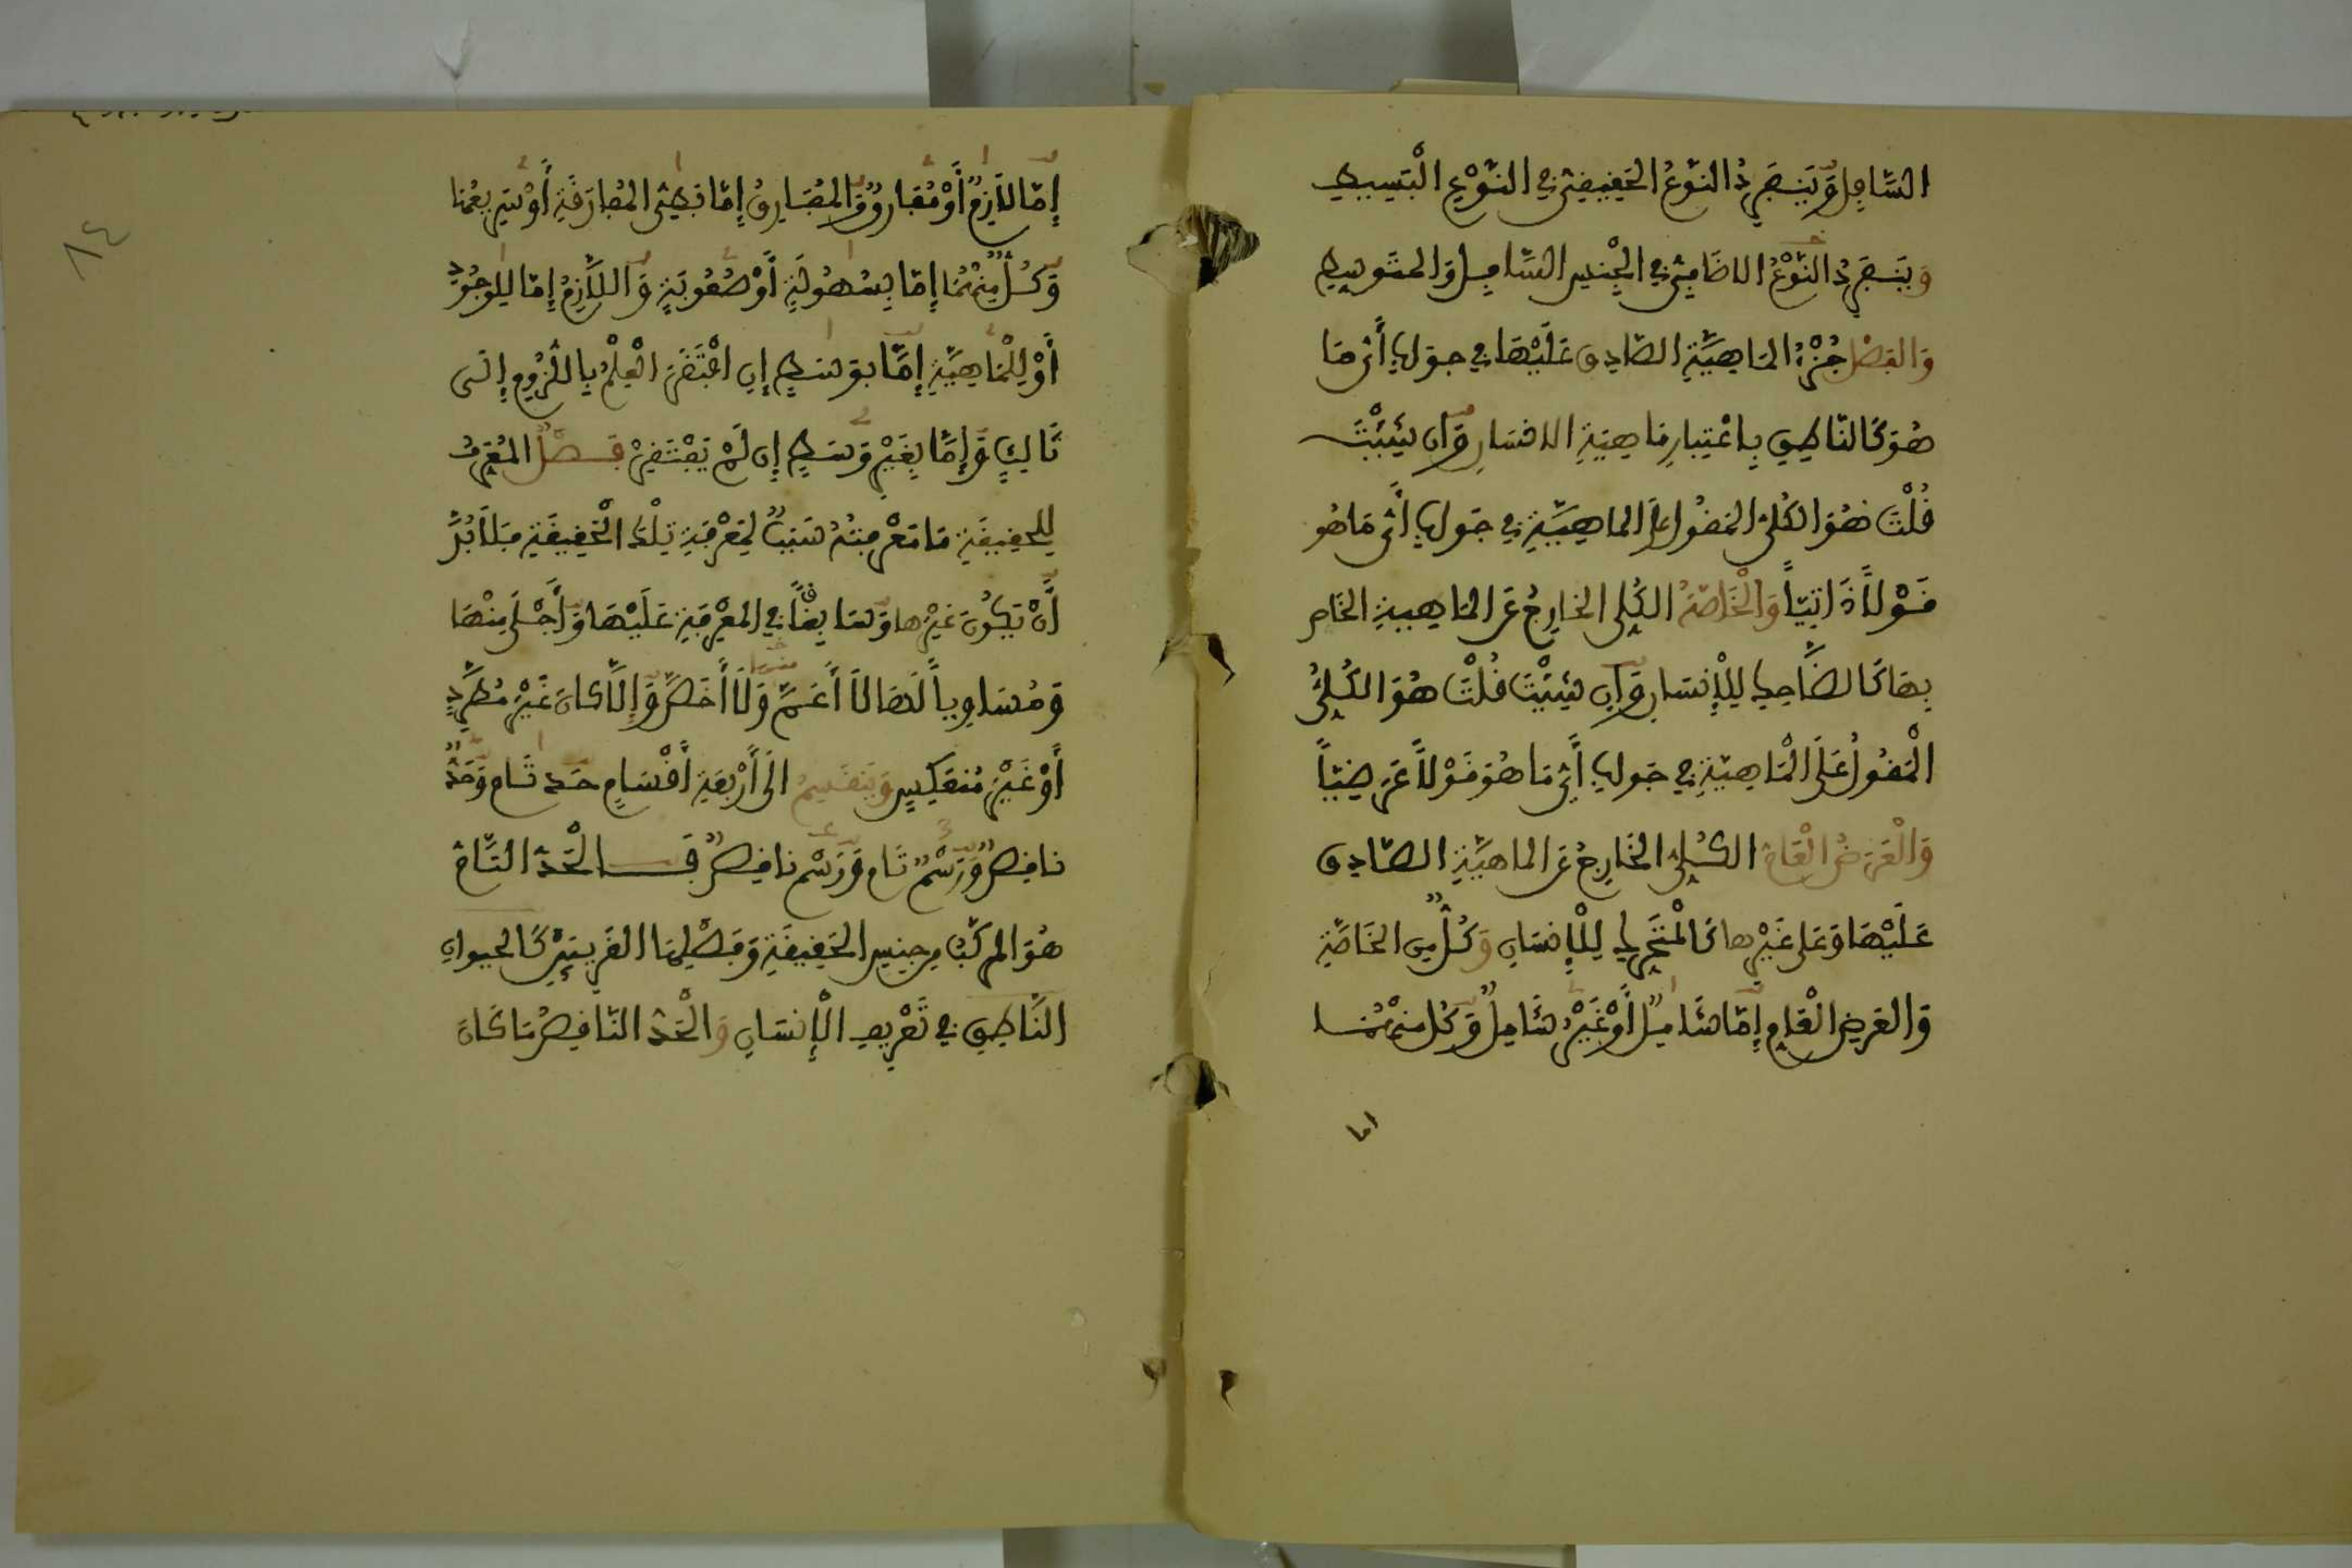 السَّافِلِ وَيَنْفَرِدُ النَّوْعُ الحَقِيقِيُّ فِي النَّوْعِ الْبَسِيطِ
وَيَنْفَرِدُ النَّوْعُ الاضَافِيُّ فِي الْجِنْسِ السَّافِلِ وَالمتَوسِطِ
وَالفَصْلُ جُزْءُ المَاهِيَّةِ الصَّادِق عَلَيْهَا في جوابِ أَيُّ مَا
هُوَ كَالنَّاطِقِ بِاعْتِبَارِ مَاهِيَةِ الانسَانِ وَإن شِئْتَ
قُلْتَ هُوَ الكُلِيُّ المَقُولُ عَلَى الماهِيَّةِ فِي جَوابِ أَيُّ مَا هُوَ
قَوْلاً ذَاتِيّاً وَالْخَاصَّةُ الكُلِي الخَارِجُ عَنِ المَاهِيةِ الخَاص
بِهَا كَالضَّاحِكِ لِلْإِنسَانِ وَإن شِئْتَ قُلْتَ هُوَ الكُلِيُّ
الْمَقُولُ عَلَى الْمَاهِيَّةِ فِي جَوابِ أَيُّ مَا هُوَ قَوْلاً عَرَضِيّاً
وَالْعَرَضُ الْعَامُّ الكُلِيُّ الخَارِجُ عَنِ الماهِيَّةِ الصَّادِق
عَلَيْهَا وَعَلى غَيْرِهَا كَالْمتَحَرِكِ لِلْإِنسَانِ وَكُلٌّ مِن الخَاصَّةِ
وَالعَرضِ الْعَامِ إِمَّا شَامِلٌ أَوْ غَيْرُ شَامِلٍ وَكُل مِنْهُمَا
اما
١٤
إِمَّا لَازِمٌ أَوْ مُفَارِقٌ وَالمُفَارِقُ إِمَّا بَطِئُ المُفَارَقَةِ أَوْ سَرِيعُهَا
وَكُلٌّ مِنْهُمَا إِمَّا بِسُهُولَةٍ أَوْ صُعُوبَةٍ وَاللَّازِمُ إِمَّا لِلوُجُودِ
أَوْ لِلْمَاهِيَّةِ إِمَّا بِوسَطٍ إِن افْتَقَرَ الْعِلْمُ بِاللُّزُومِ إِلَى
ثَالِثٍ وَإِمَّا بِغَيْرِ وَسَطٍ إِن لَمْ يَفْتَقِرْ فَصْلٌ المُعَرِفُ
لِلحَقِيقَةِ مَا مَعْرِفَتُهُ سَبَبٌ لِمَعْرِفَةِ تِلْكَ الْحَقِيقَةِ فَلَا بُدَّ
أَنْ يَكُونَ غَيْرَها وَسَابِقاً فِي المَعْرِفَةِ عَلَيْهَا وَأَجْلَى مِنْهَا
وَمُسَاوِياً لَهَا لَا أَعَمَّ وَلَا أَخَصَّ وَإِلَّا كَانَ غَيْرَ مُطَّرِدٍ
أَوْ غَيْرَ مُنعَكِسٍ وَيَنقَسِمُ الَى أَرْبَعَةِ أَقْسَامٍ حَد تَام وَحَدٌّ
نَاقِصٌ وَرَسْمٌ تَام وَرَسْم نَاقِصٌ فَالْحَدُّ التَّامُّ
هُوَ المركَّبُ مِن جِنسِ الحَقِيقَةِ وَفَصْلِهَا القَرِيبَيْنِ كَالحيوانِ
النَّاطِقِ فِي تَعْرِيفِ الْإِنسَانِ وَالْحَدُّ النَّاقِصُ مَا كَانَ